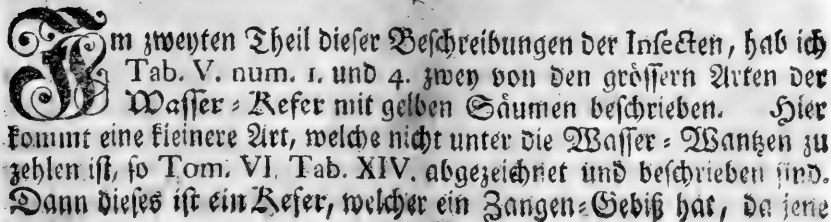 Im zweyten Theil dieser Beschreibungen der Insecten, hab ich
Tab. V. num. 1. und 4. zwey von den grössern Arten der
Wasser = Kefer mit gelben Säumen beschrieben. Hier
kommt eine kleinere Art, welche nicht unter die Wasser = Wantzen zu
zehlen ist, so Tom. VI. Tab. XIV. abgezeichnet und beschrieben sind.
Dann dieses ist ein Kefer, welcher ein Zangen=Gebiß hat, da jene